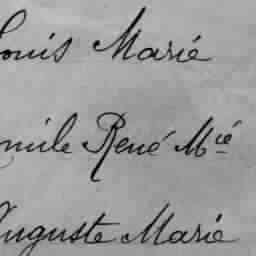 Louis Marié
Emile René Mié
Auguste Marie